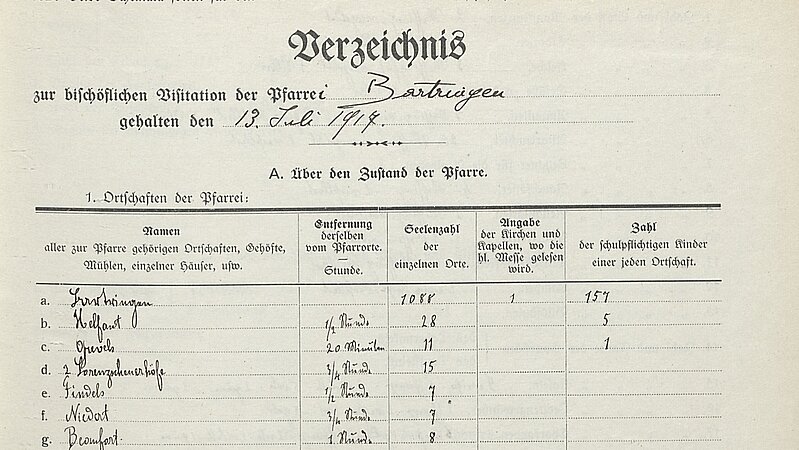 Verzeichnis
zur bischöflichen Visitation der Pfarrei Bartringen
gehalten den 13. Juli 1917.
A. Über den Zustand der Pfarre.
1. Ortschaften der Pfarrei:
Namen
aller zur Pfarre gehörigen Ortschaften, Gehöfte,
Mühlen, einzelner Häuser, usw.
Entfernung
derselben
vom Pfarrorte.
—
Stunde.
Seelenzahl
der
einzelnen Orte.
Angabe
der Kirchen und
Kapellen, wo die
hl. Messe gelesen
wird.
Zahl
der schulpflichtigen Kinder
einer jeden Ortschaft.
a. Bartringen 1088 1 157
b. Helfant 1/2 Stunde 28 5
c. Grevels 20 Minuten 11 1
d. 2 Lorenzscheuerhöfe 3/4 Stunde 15
e. Findels 1/2 Stunde 7
f. 3/4 Stunde 7
g. 1 Stunde 8